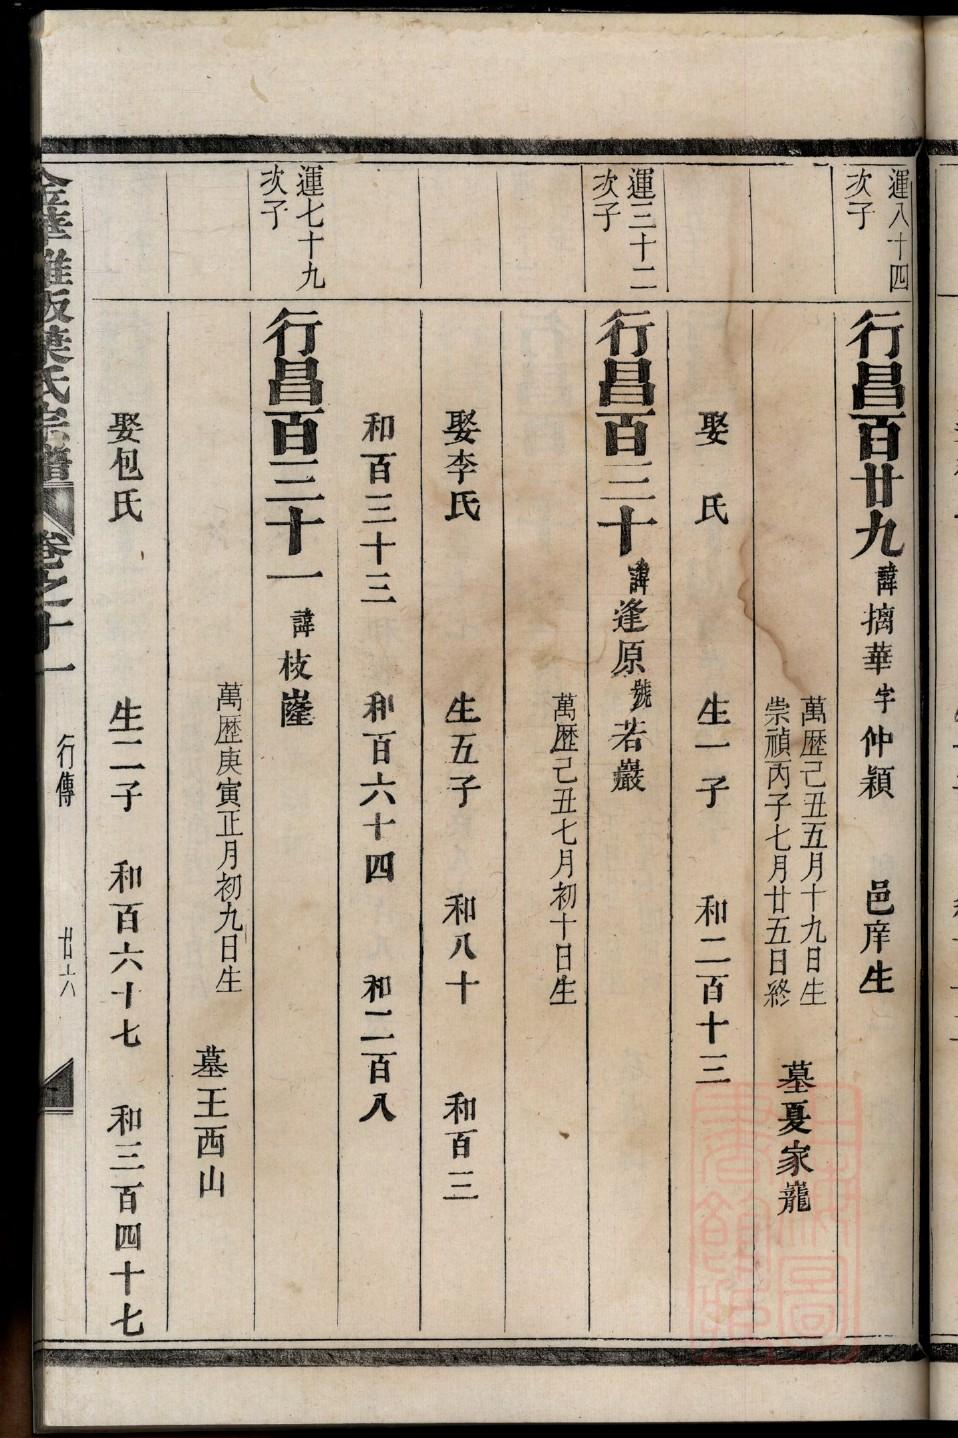 運八十四
次子
行昌百廿九 諱摛華字仲穎 邑庠生
萬歷己丑五月十九日生
崇禎丙子七月廿五日終
墓夏家龍
娶 氏 生一子 和二百十三
運三十二
次子
行昌百三十 諱逢原號若巖
萬歷己丑七月初十日生
娶李氏 生五子 和八十 和百三
和百三十三 和百六十四 和二百八
運七十九
次子
行昌百三十一 諱枝嶐
萬歷庚寅正月初九日生
墓王西山
娶包氏 生二子 和百六十七 和三百四十七
金華雅畈葉氏宗譜 卷之十一 行傳 廿六